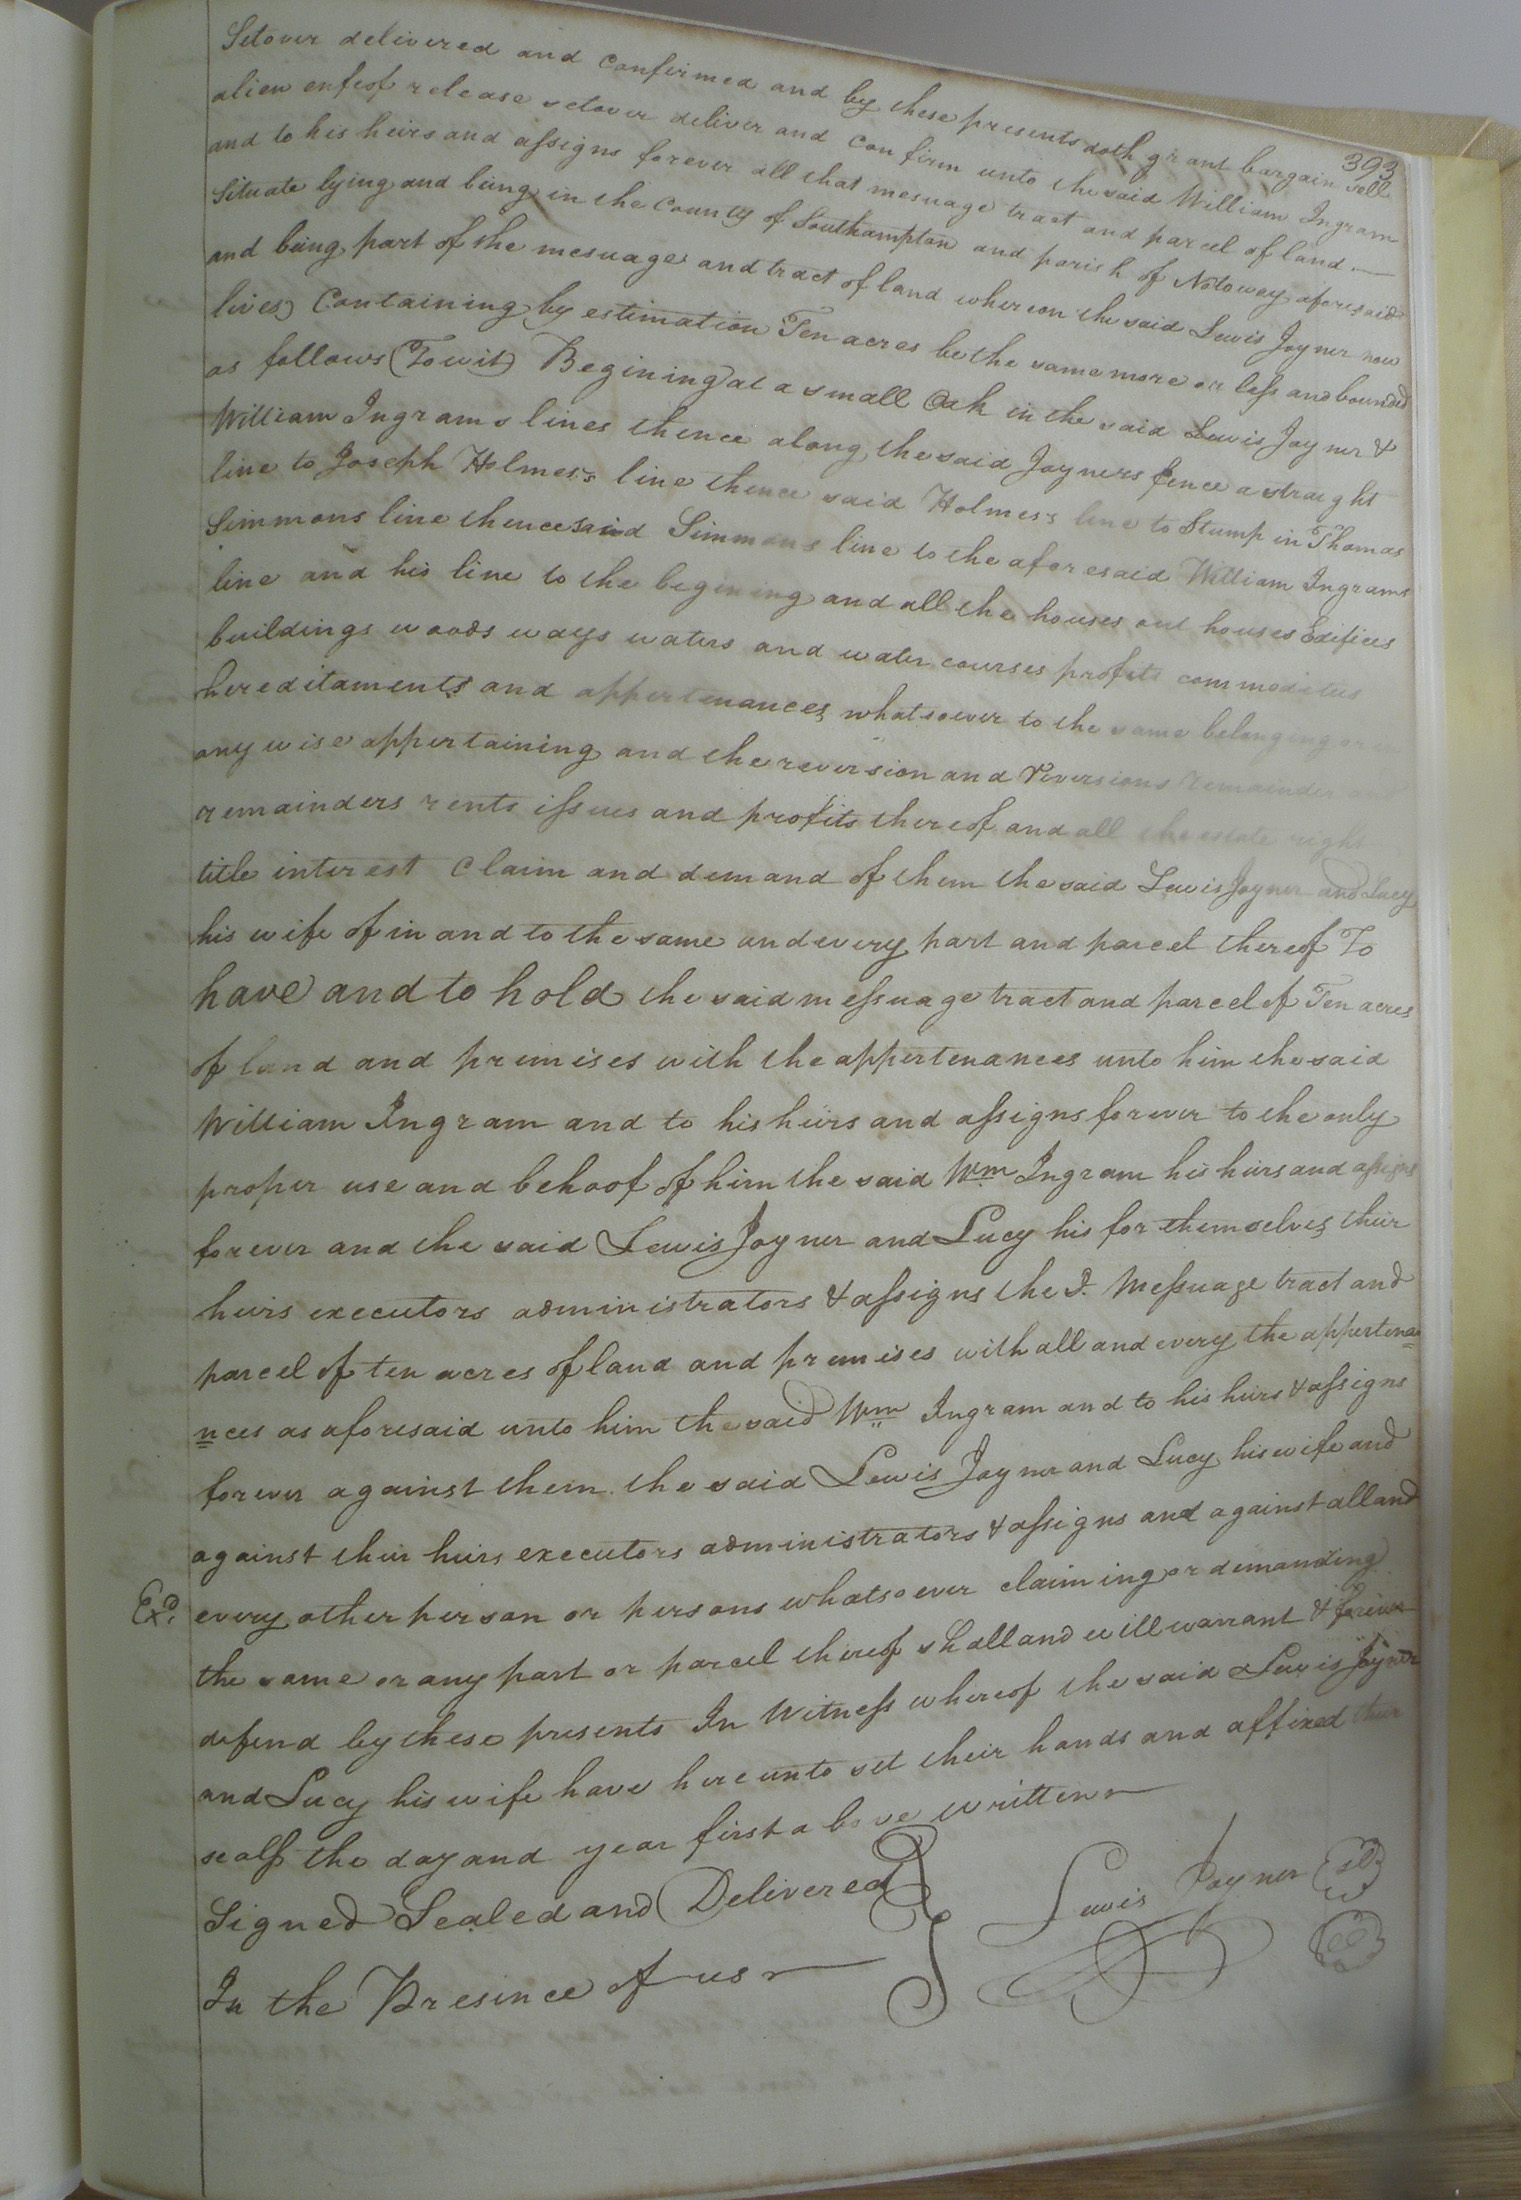 393
Setover delivered and confirmed and by these presents doth grant bargain sell
alien enfeof release setover deliver and confirm unto the said William Ingram
and to his heirs and assigns forever all that mesuage tract and parcel of land
Situate lying and being in the County of Southampton and parish of Notoway aforesaid
and being part of the mesuage and tract of land whereon the said Lewis Joyner now
lives Containing by estimation Ten acres be the same more or less and bounded
as follows (Towit) Begining at a small Oak in the said Lewis Joyner &
William Ingrams lines thence along the said Joyners fence a straight
line to Joseph Holmes's line thence said Holmes's line to Stump in Thomas
Simmons line thence said Simmons line to the aforesaid William Ingrams
line and his line to the begining and all the houses out houses Edifices
buildings woods ways waters and water courses profits commodities
hereditaments and appertenances whatsoever to the same belonging or in
any wise appertaining and the reversion and reversions remainder and
remainders rents issues and profits thereof and all the estate right
title interest Claim and demand of them the said Lewis Joyner and Lucy
his wife of in and to the same and every part and parcel thereof To
have and to hold the said messuage tract and parcel of Ten acres
of land and premises with the appertenances unto him the said
William Ingram and to his heirs and assigns forever to the only
proper use and behoof of him the said Wm Ingram his heirs and assigns
forever and the said Lewis Joyner and Lucy his for themselves their
heirs executors administrators & assigns the Sd. Messuage tract and
parcel of ten acres of land and premises with all and every the appertena=
nces as aforesaid unto him the said Wm Ingram and to his heirs & assigns
forever against them the said Lewis Joyner and Lucy his wife and
against their heirs executors administrators & assigns and against all and
Exd. every other person or persons whatsoever claiming or demanding
the same or any part or parcel thereof shall and will warrant & forever
defend by these presents In Witness whereof the said Lewis Joyner
and Lucy his wife have hereunto set their hands and affixed their
seals the day and year first above written
Signed Sealed and Delivered
Lewis Joyner
In the Presence of us